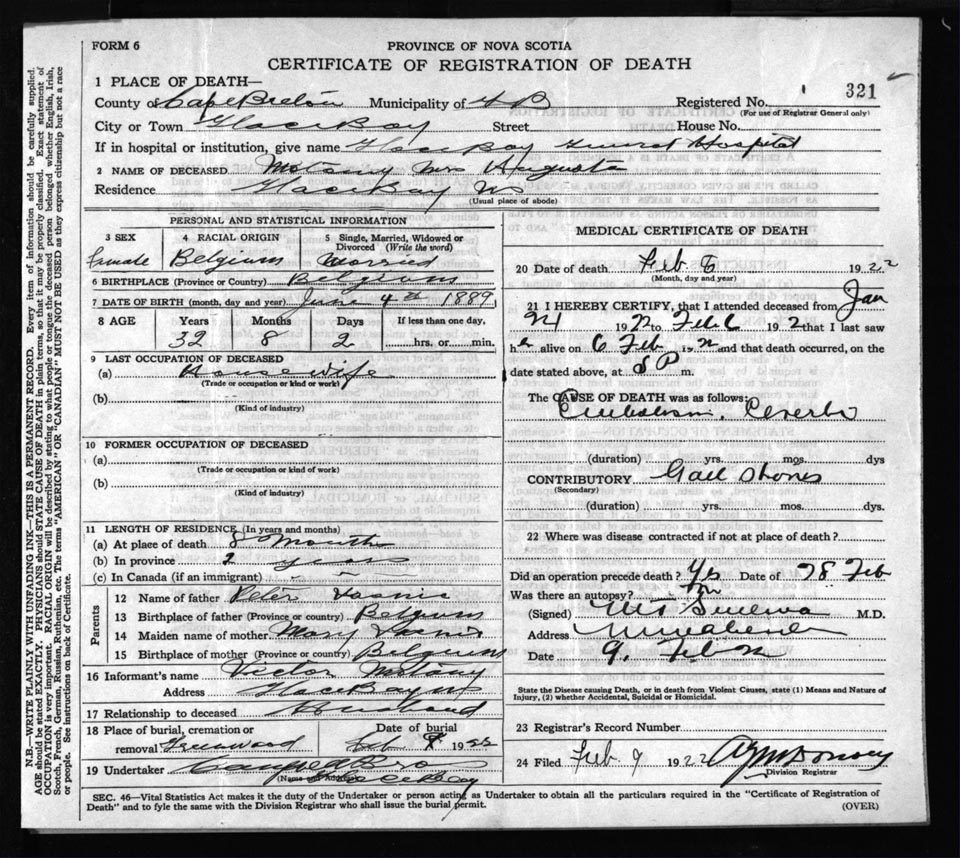 FORM 6
PROVINCE OF NOVA SCOTIA
CERTIFICATE OF REGISTRATION OF DEATH
321
1 PLACE OF DEATH—
County of Cape Breton Municipality of CB Registered No.
(For use of Registrar General only)
City or Town Glace Bay Street House No.
If in hospital or institution, give name Glace Bay General Hospital
2 NAME OF DECEASED Mrs Augusta
Residence Glace Bay NS
(Usual place of abode)
PERSONAL AND STATISTICAL INFORMATION
3 SEX 4 RACIAL ORIGIN 5 Single, Married, Widowed or Divorced (Write the word)
female Belgium Married
6 BIRTHPLACE (Province or Country) Belgium
7 DATE OF BIRTH (month, day and year) June 4th 1889
8 AGE Years Months Days If less than one day,
32 8 2 hrs. or min.
9 LAST OCCUPATION OF DECEASED
(a) Housewife
(Trade or occupation or kind or work)
(b)
(Kind of industry)
10 FORMER OCCUPATION OF DECEASED
(a)
(Trade or occupation or kind of work)
(b)
(Kind of industry)
11 LENGTH OF RESIDENCE (In years and months)
(a) At place of death 8 Months
(b) In province 2 years
(c) In Canada (if an immigrant)
Parents
12 Name of father Peter
13 Birthplace of father (Province or country) Belgium
14 Maiden name of mother Mary
15 Birthplace of mother (Province or country) Belgium
16 Informant's name Victor
Address Glace Bay NS
17 Relationship to deceased Husband
18 Place of burial, cremation or removal Greenwood
Date of burial
Feb 1922
19 Undertaker
(Name and Address) Glace Bay
MEDICAL CERTIFICATE OF DEATH
20 Date of death Feb 6 1922
(Month, day and year)
21 I HEREBY CERTIFY, that I attended deceased from Jan
21 1922 to Feb 6 192 that I last saw
h alive on 6 Feb and that death occurred, on the
date stated above, at 8 P m.
The CAUSE OF DEATH was as follows:
Embolism, Cerebral
(duration) yrs. mos. dys
CONTRIBUTORY Gall Stones
(Secondary)
(duration) yrs. mos. dys.
22 Where was disease contracted if not at place of death?
Did an operation precede death? Yes Date of 28
Was there an autopsy?
(Signed) M.D.
Address
Date 9. Feb
State the Disease causing Death, or in death from Violent Causes, state (1) Means and Nature of Injury, (2) whether Accidental, Suicidal or Homicidal.
23 Registrar's Record Number
24 Filed Feb 9 1922
Division Registrar
SEC. 46—Vital Statistics Act makes it the duty of the Undertaker or person acting as Undertaker to obtain all the particulars required in the "Certificate of Registration of
Death" and to fyle same with the Division Registrar who shall issue the burial permit. (OVER)
N.B.—WRITE PLAINLY WITH UNFADING INK—THIS IS A PERMANENT RECORD. Every item of information should be carefully supplied.
AGE should be stated EXACTLY. PHYSICIANS should STATE CAUSE OF DEATH in plain terms, so that it may be properly classified. Exact statement of
OCCUPATION is very important. RACIAL ORIGIN will be described by stating to what people or tongue the deceased person belonged whether English, Irish,
Scotch, French, German, Russian, Ruthenian, etc. The terms "AMERICAN" OR "CANADIAN" MUST NOT BE USED as they express citizenship but not a race
or people. See instructions on back of Certificate.